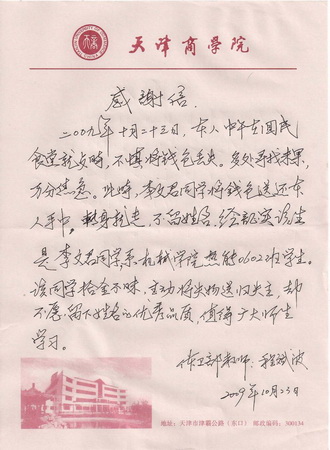 天津商学院
感謝信
二〇〇九年十月二十三日,本人中午在国民
食堂就贞时,不慎将钱包丢失。多处寻找未果,
万分焦急。此时,李文君同学将钱包送还本
人手中,转身就走,不留姓名,经证实该生
是李文君同学系机械学院热能0602班学生。
该同学拾金不昧,主动将失物送归失主,却
不愿留下姓名的优秀品质,值得广大师生
学习。
体卫部教师:程斌
2009年10月23日
地址:天津市津霸公路(东口) 邮政编码:300134